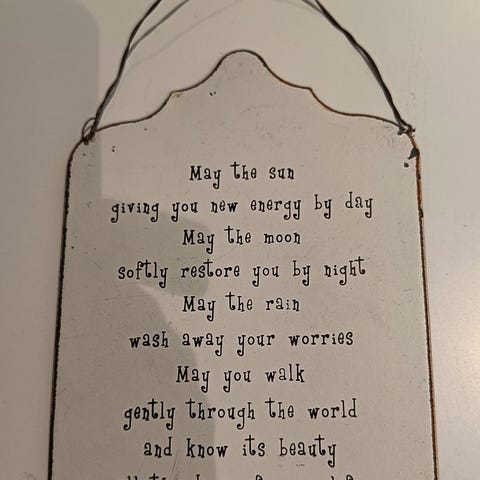 May the sun
giving you new energy by day
May the moon
softly restore you by night
May the rain
wash away your worries
May you walk
gently through the world
and know its beauty